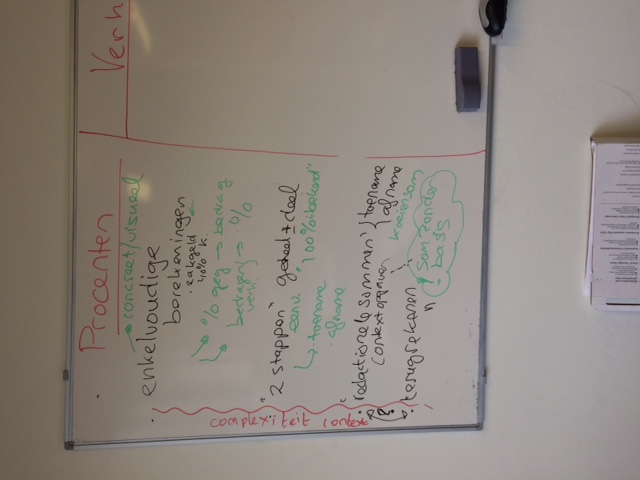 Procenten
Verh
→ concreet/visueel
enkelvoudige
berekeningen
zakgeld
40% k.
% geg → bedrag
bedragen } → %
verh.
"2 stappen" geheel ± deel
"100% is bekend"
↳ toename
afname
redactionele 'sommen' { toename
contextopgaven { afname
terugrekenen
! Som zonder
basis
complexiteit context